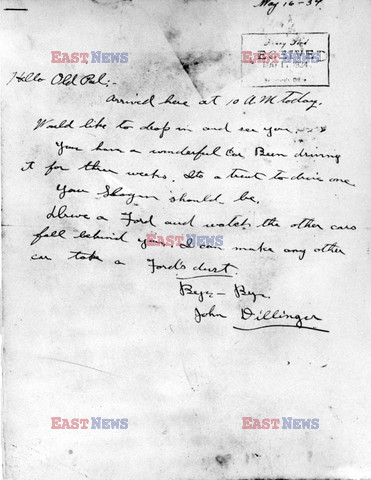 May 16-34
RECEIVED
Hello Old Pal:-
Arrived here at 10 AM Today.
Would like to drop in and see you.
You have a wonderful Car Been driving
it for three weeks. Its a treat to drive one
Your Slogan should be,
Drive a Ford and watch the other cars
fall behind you. I can make any other
car take a Ford's dust.
Bye- Bye
John Dillinger
EASTNEWS EASTNEWS
EASTNEWS EASTNEWS
EASTNEWS EASTNEWS